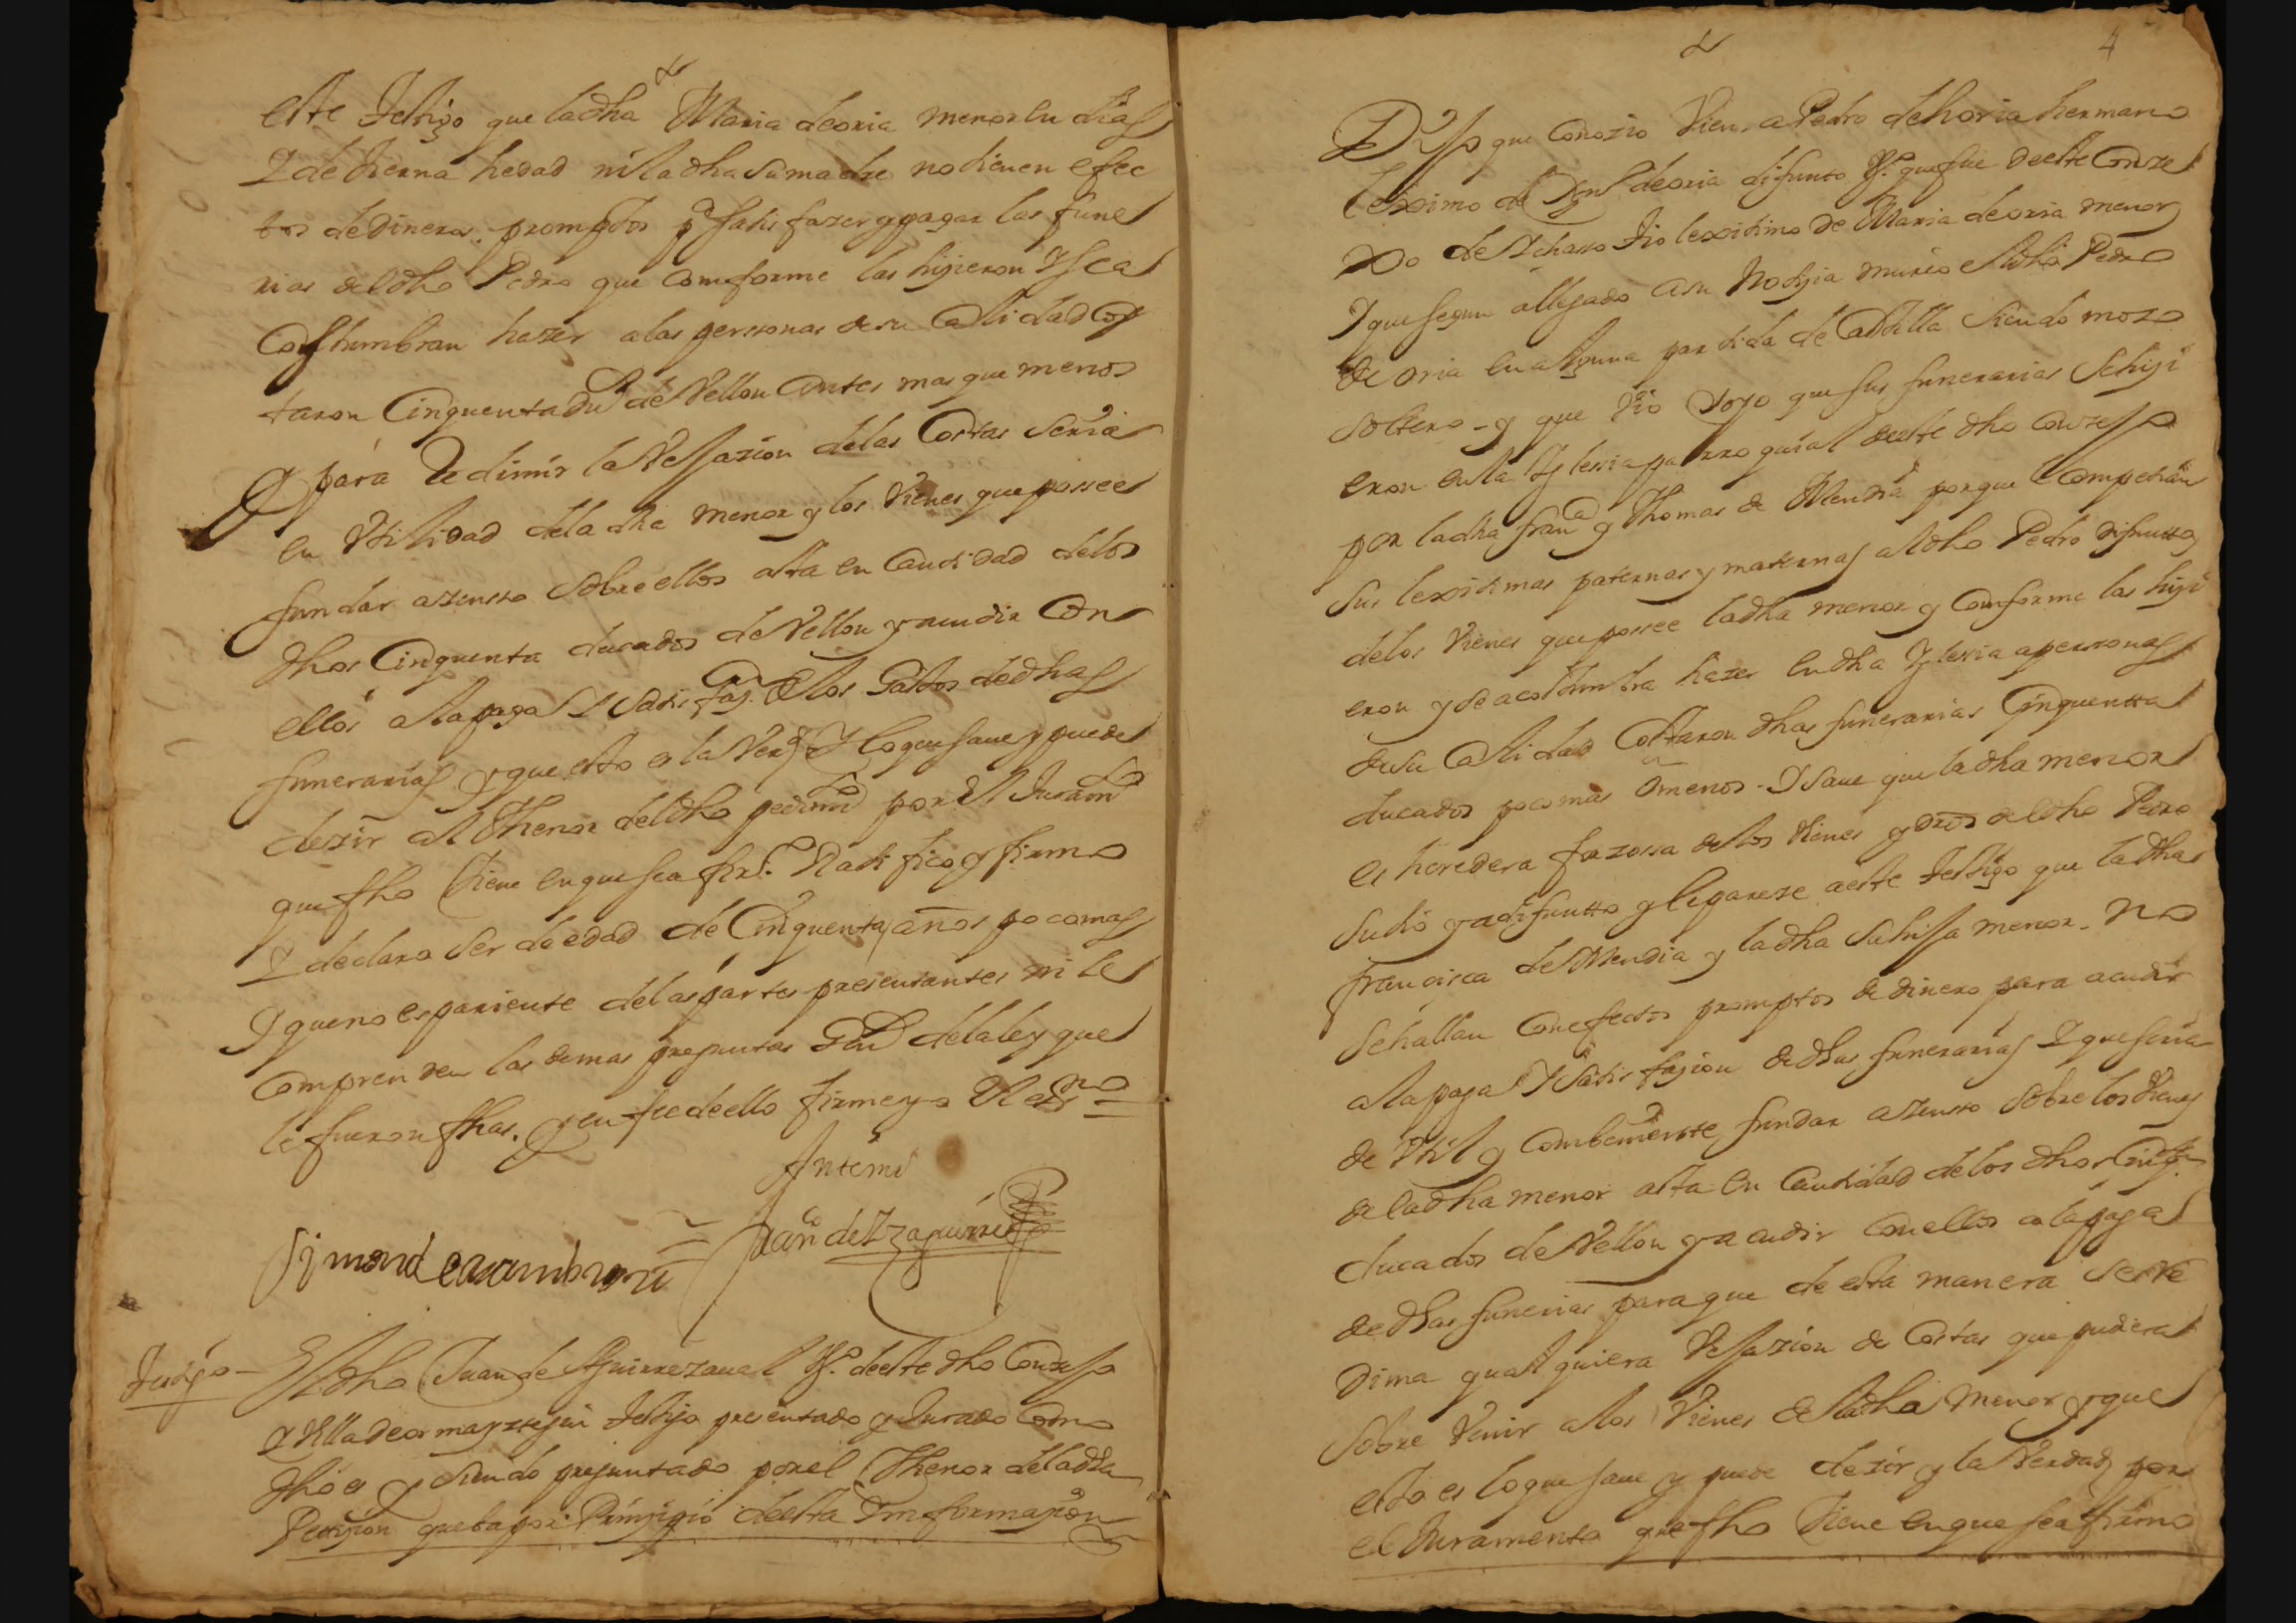 este Testigo que la dha Maria de oria menor en dias
Y de tierna hedad ni la dha su madre no tienen efec
tos de dineros promptos pª satisfazer y pagar las fune
rias del dho Pedro que comforme las hijieron Y se a
Costumbran hazer a las perssonas de su Calidad Cos
taron Cinquenta du.s de Vellon antes mas que menos
Y para Redimir la Vessazion de las Costas seria
en Utilidad de la dha menor y los Vienes que possee
fundar a zensso sobre ellos asta en Cantidad de los
dhos Cinquenta ducados de Vellon y acudir Con
ellos a la paga Y satisfaz.on de los Gastos de dhas
funerarias y que esto es la Verd Y lo que save y puede
dezir al Thenor del dho pedim.to por el Juram.to
que fho tiene en que se afir.º Ratifico y firmo
Y declaro ser de edad de Cinquenta años poco mas
Y que no es pariente de las partes presentantes ni le
Comprenden las demas preguntas Gen.s de la ley que
le fueron fhas. Y en fee de ello firme yo el es.no =
Ante mi
Simon de arambruru = Fran.co de Yzaguirre
Testigo - El dho Juan de Aguirrezaval V.º de este dho Conzejo
y Villa de ormayztegui testigo presentado y Jurado Com
dho es Y siendo preguntado por el Thenor de la dha
Petizion que ba por Prinzipio de esta Imformazion
4
Dijo que Conozio Vien a Pedro de horia hermano
lexitimo de de oria difunto V.º que fue de este Conze
jo de Ychasso tio lexitimo de Maria de oria menor
Y que segun a llegado a su Notizia murio el dho Pedro
de oria en alguna partida de Castilla siendo mozo
soltero - y que Vio Y oyo que sus funerarias se hizi
eron en la Yglesia parroquial de este dho Conzejo
por la dha Fran.ca y Thomas de Mendia porque Competian
sus lexitimas paternas y maternas al dho Pedro difuntto
de los Vienes que possee la dha menor y Comforme las hizi
eron y se acostumbra hazer en dha Yglesia a perssonas
de su Calidad Costaron dhas funerarias Cinquentta
ducados poco mas o menos. Y save que la dha menor
es heredera forzossa de los Vienes y dros del dho Pedro
su tio ya difuntto y le pareze a este Testigo que la dha
Françisca de Mendia y la dha su hija menor. no
se hallan Con efectos promptos de dinero para acudir
a la paga Y satisfazion de dhas funerarias Y que seria
de Util y Combeniente fundar a zensso sobre los Vienes
de la dha menor asta en Cantidad de los dhos Cinq.ta
ducados de Vellon y acudir Con ellos a la paga
de dhas funerias para que de esta manera se re
dima qualquiera Vessazion de Costas que pudiera
sobre Venir a los Vienes de la dha menor y que
esto es lo que save y puede dezir y la Verdad por
el Juramento que fho tiene en que se afirmo